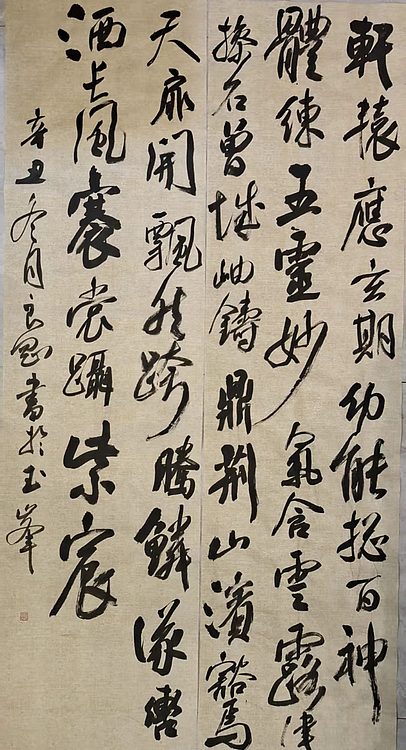 軒轅應玄期幼能揔百神
體練五靈妙氣含雲露津
摻石曾城岫鑄鼎荆山濱豁焉
天扉開飄然跨騰鱗儀轡
洒長風褰裳躡紫宸
辛丑冬月良書於玉峯